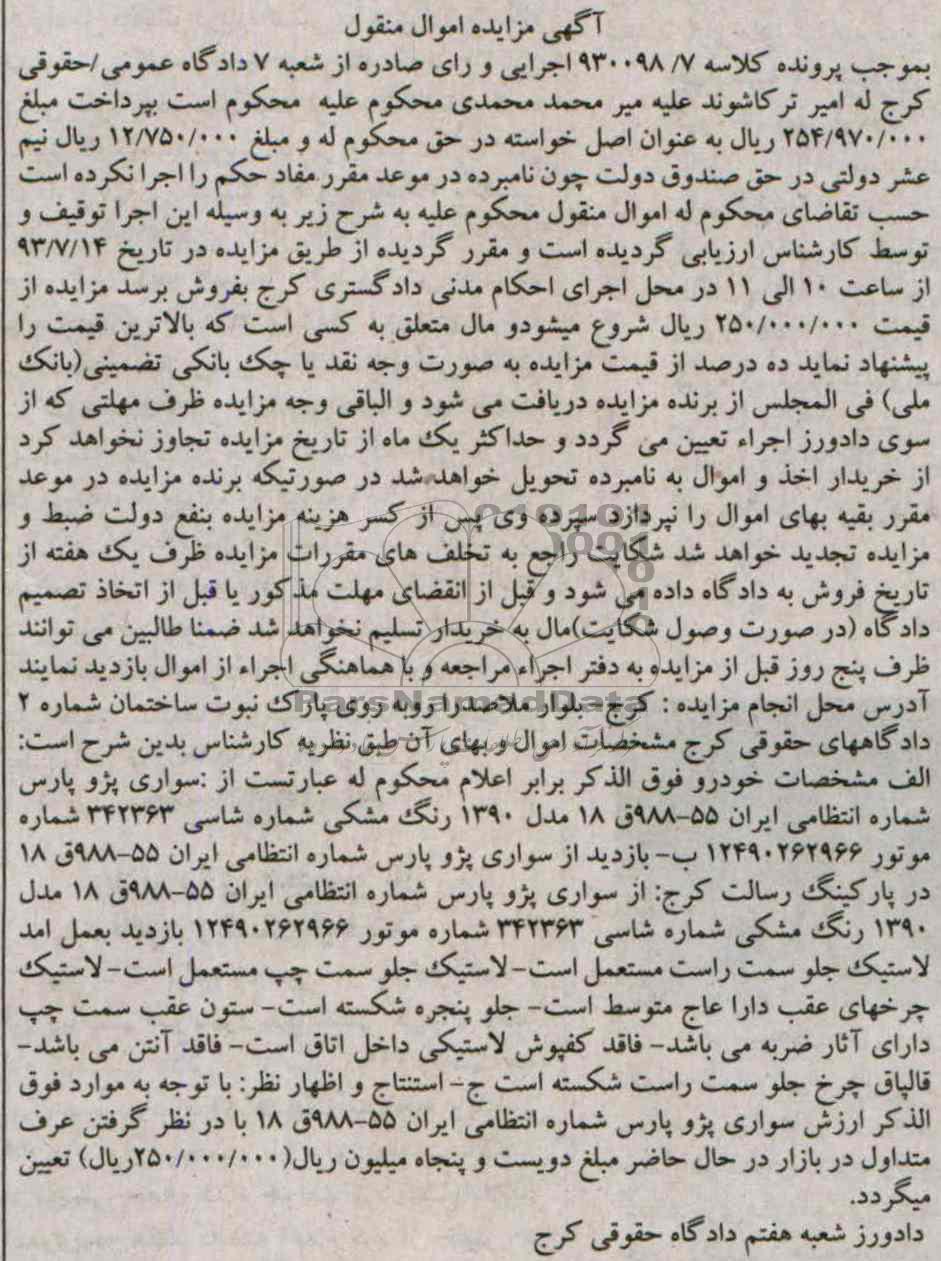 آگهی مزایده اموال منقول
بموجب پرونده کلاسه ۷/ ۹۳۰۰۹۸ اجرایی و رای صادره از شعبه ۷ دادگاه عمومی/حقوقی
کرج له امیر ترکاشوند علیه میر محمد محمدی محکوم علیه محکوم است بپرداخت مبلغ
۲۵۴/۹۷۰/۰۰۰ ریال به عنوان اصل خواسته در حق محکوم له و مبلغ ۱۲/۷۵۰/۰۰۰ ریال نیم
عشر دولتی در حق صندوق دولت چون نامبرده در موعد مقرر مفاد حکم را اجرا نکرده است
حسب تقاضای محکوم له اموال منقول محکوم علیه به شرح زیر به وسیله این اجرا توقیف و
توسط کارشناس ارزیابی گردیده است و مقرر گردیده از طریق مزایده در تاریخ ۹۳/۷/۱۴
از ساعت ۱۰ الی ۱۱ در محل اجرای احکام مدنی دادگستری کرج بفروش برسد مزایده از
قیمت ۲۵۰/۰۰۰/۰۰۰ ریال شروع میشودو مال متعلق به کسی است که بالاترین قیمت را
پیشنهاد نماید ده درصد از قیمت مزایده به صورت وجه نقد یا چک بانکی تضمینی(بانک
ملی) فی المجلس از برنده مزایده دریافت می شود و الباقی وجه مزایده ظرف مهلتی که از
سوی دادورز اجراء تعیین می گردد و حداکثر یک ماه از تاریخ مزایده تجاوز نخواهد کرد
از خریدار اخذ و اموال به نامبرده تحویل خواهد شد در صورتیکه برنده مزایده در موعد
مقرر بقیه بهای اموال را نپردازد سپرده وی پس از کسر هزینه مزایده بنفع دولت ضبط و
مزایده تجدید خواهد شد شکایت راجع به تخلف های مقررات مزایده ظرف یک هفته از
تاریخ فروش به دادگاه داده می شود و قبل از انقضای مهلت مذکور یا قبل از اتخاذ تصمیم
دادگاه (در صورت وصول شکایت)مال به خریدار تسلیم نخواهد شد ضمنا طالبین می توانند
ظرف پنج روز قبل از مزایده به دفتر اجراء مراجعه و با هماهنگی اجراء از اموال بازدید نمایند
آدرس محل انجام مزایده : کرج- بلوار ملاصدرا روبه روی پارک نبوت ساختمان شماره ۲
دادگاههای حقوقی کرج مشخصات اموال و بهای آن طبق نظریه کارشناس بدین شرح است:
الف مشخصات خودرو فوق الذکر برابر اعلام محکوم له عبارتست از :سواری پژو پارس
شماره انتظامی ایران ۵۵-۹۸۸ق ۱۸ مدل ۱۳۹۰ رنگ مشکی شماره شاسی ۳۴۲۳۶۳ شماره
موتور ۱۲۴۹۰۲۶۲۹۶۶ ب- بازدید از سواری پژو پارس شماره انتظامی ایران ۵۵-۹۸۸ق ۱۸
در پارکینگ رسالت کرج: از سواری پژو پارس شماره انتظامی ایران ۵۵-۹۸۸ق ۱۸ مدل
۱۳۹۰ رنگ مشکی شماره شاسی ۳۴۲۳۶۳ شماره موتور ۱۲۴۹۰۲۶۲۹۶۶ بازدید بعمل امد
لاستیک جلو سمت راست مستعمل است- لاستیک جلو سمت چپ مستعمل است- لاستیک
چرخهای عقب دارا عاج متوسط است- جلو پنجره شکسته است- ستون عقب سمت چپ
دارای آثار ضربه می باشد- فاقد کفپوش لاستیکی داخل اتاق است- فاقد آنتن می باشد-
قالپاق چرخ جلو سمت راست شکسته است ج- استنتاج و اظهار نظر: با توجه به موارد فوق
الذکر ارزش سواری پژو پارس شماره انتظامی ایران ۵۵-۹۸۸ق ۱۸ با در نظر گرفتن عرف
متداول در بازار در حال حاضر مبلغ دویست و پنجاه میلیون ریال(۲۵۰/۰۰۰/۰۰۰ریال) تعیین
میگردد.
دادورز شعبه هفتم دادگاه حقوقی کرج
ParsNamadData